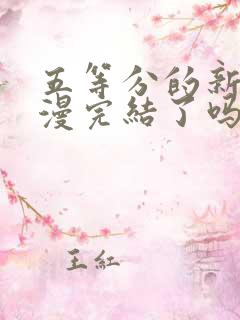 五等分的新
漫完結了吗
王紅